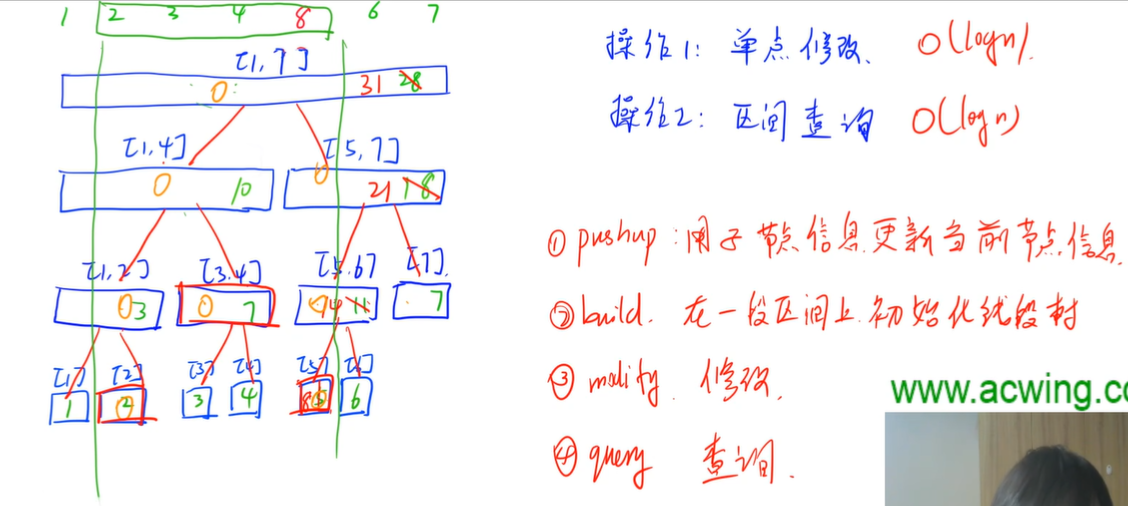 1 2 3 4 8 6 7
[1,7]
0 31 28
[1,4] [5,7]
0 10 0 21 18
[1,2] [3,4] [5,6] [7]
03 0 7 11 7
[1] [2] [3] [4] [5] [6]
1 2 3 4 8 6
操作1: 单点修改. O(logn).
操作2: 区间查询 O(logn)
① pushup: 用子节点信息更新当前节点信息.
② build. 在一段区间上初始化线段树
③ modify 修改.
④ query 查询.
www.acwing.co